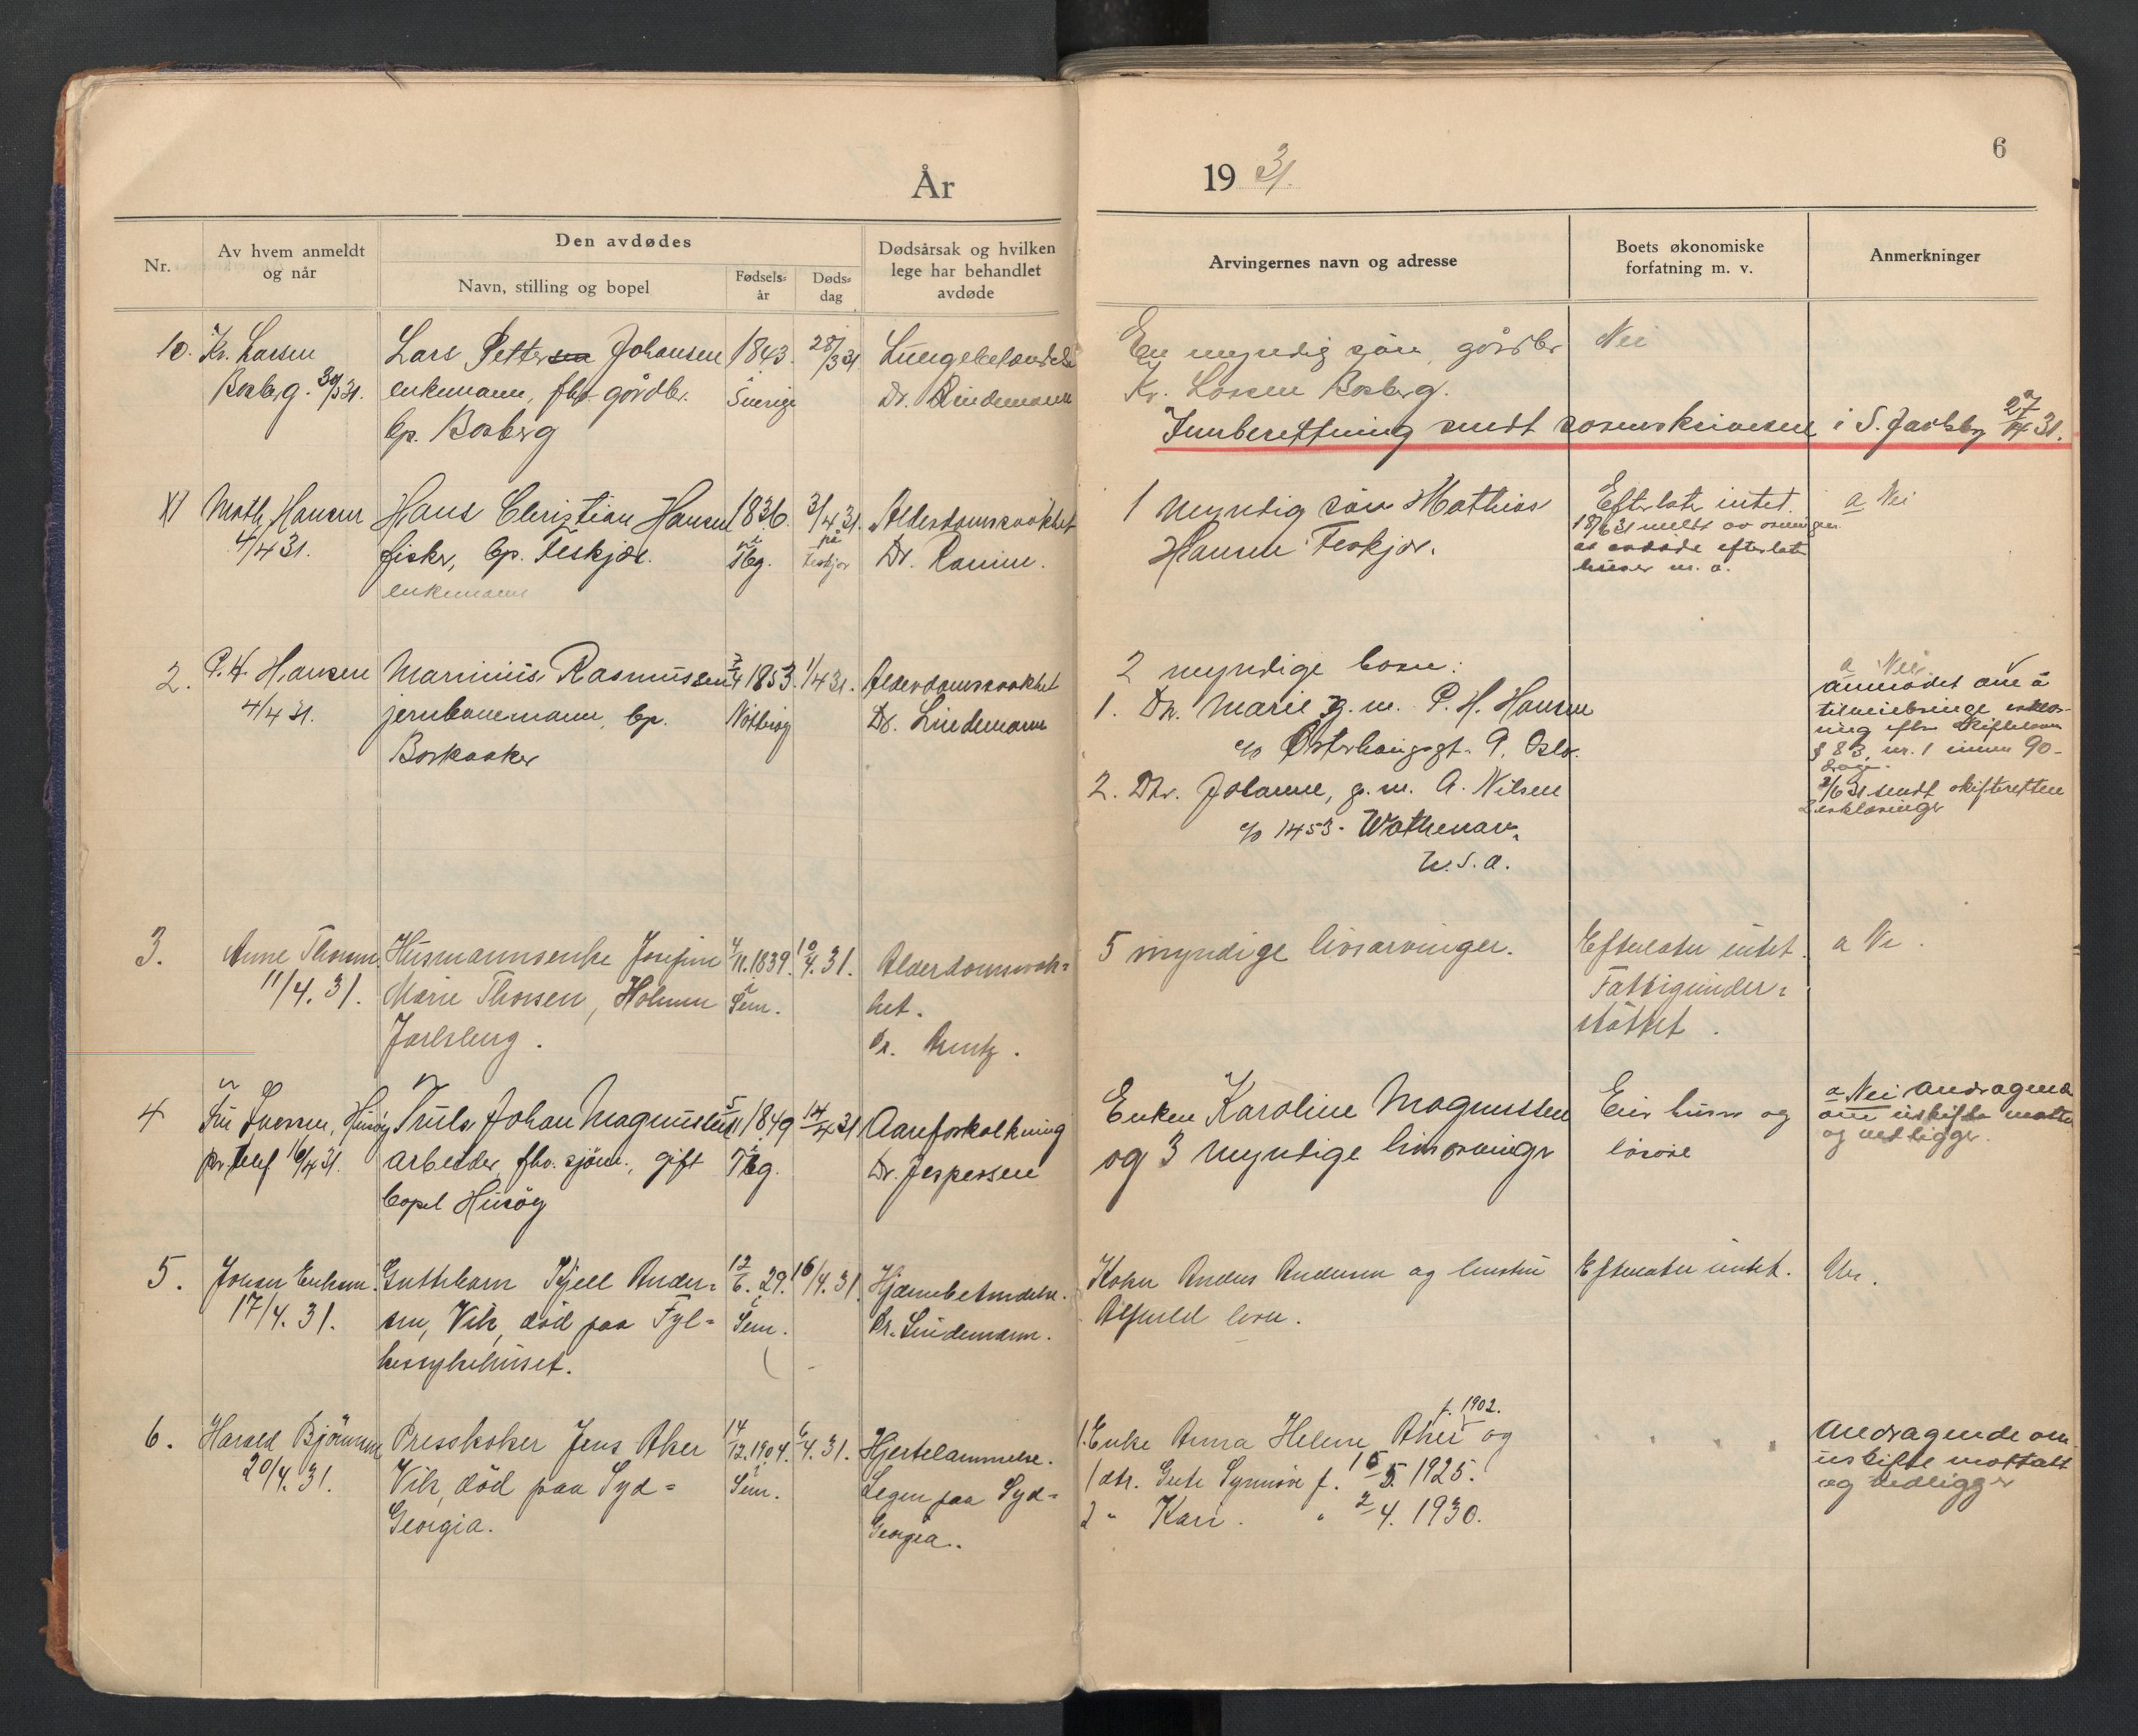 6
År 1931.
Nr.
Av hvem anmeldt
og når
Den avdødes
Navn, stilling og bopel
Fødsels-
år
Døds-
dag
Dødsårsak og hvilken
lege har behandlet
avdøde
Arvingernes navn og adresse
Boets økonomiske
forfatning m. v.
Anmerkninger
10. Kr. Larsen
Borberg. 30/3 31.
Lars Pettersen Johansen
enkemann, fhv. gårdbr.
bp. Borberg
1843.
i Sverige
28/3 31
Lungebetændelse
Dr. Lindemann
En myndig sön, gårdbr
Kr. Larsen Borberg.
Nei
Innberettning sendt sorenskriveren i S. Jarlsbg 27/4 31.
Math. Hansen
4/4 31.
Hans Christian Hansen
fisker, bp. Feskjær.
enkemann
1836.
i Tbg.
3/4 31.
på
Feskjær
Alderdomssvakhet
Dr.
1 myndig sön Mathias
Hansen Feskjær.
Efterlater intet.
18/6 31 meldt av
at avdøde efterlater
huser m. a.
a Nei
2. P. H. Hansen
4/4 31.
Marinius Rasmussen
jernbanemann, bp.
Barkaaker
1853.
Nötteröy
1/4 31.
Alderdomssvakhet
Dr. Lindemann
2 myndige barn:
1. Dtr. Marie g. m. P. H. Hansen
c/o Österhaugsgt. 9. Oslo.
2. Dtr. Johanne, g. m. A. Nilsen
c/o 1453-
U.S.A.
a Nei
Anmodet om å
tilveiebringe erklær-
ing efter skifteloven
§ 83, nr. 1 innen 90-
dage.
sendt skifteretten
2 erklæringer
3. Anne Thorsen
11/4. 31.
Husmannsenke Josefine
Marie Thorsen, Holmen
Jarlsberg.
4/11. 1839.
i Sem.
10/4. 31.
Alderdomssvak-
het.
Dr.
5 myndige livsarvinger.
Efterlater intet.
Fattigunder-
støttet.
a Nei.
4 Husöy
pr. telef 16/4 31.
Truls Johan Magnussen
arbeider, fhv. sjöm., gift
bopel Husöy
5/11 1849
i Tbg.
14/4 31
Aareforkalkning
Dr. Jespersen
Enken Karoline Magnussen
og 3 myndige livsarvinger
Eier huser og
lösöre
a Nei Andragende
om uskifte mottatt
og vedligger.
5. Johan Eriksen.
17/4. 31.
Guttebarn Kjell Ander-
sen, Vik, död paa Fyl-
kessykehuset.
12/6. 29.
i Sem.
16/4. 31.
Hjernebetendelse.
Dr. Lindemann.
Anders Andersen og hustru
Alfhild
Efterlater intet.
Nei.
6. Harald Björnsen
20/4. 31.
Presskoker Jens Aker
Vik, död paa Syd-
Georgia.
14/12. 1904.
i Sem.
6/4. 31.
Hjertelammelse.
Legen paa Syd-
Georgia.
f. 1902.
1. Enke Anna Helene Aker og
1 dtr. Grete Synnöve f. 15/5. 1925.
2 " Kari. " 2/4. 1930.
" " " "
Andragende om
uskifte mottatt
og vedligger